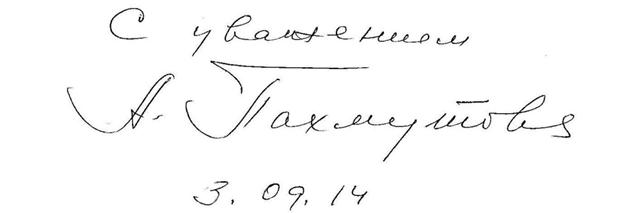 С уважением
А. Пахмутова
3. 09. 14